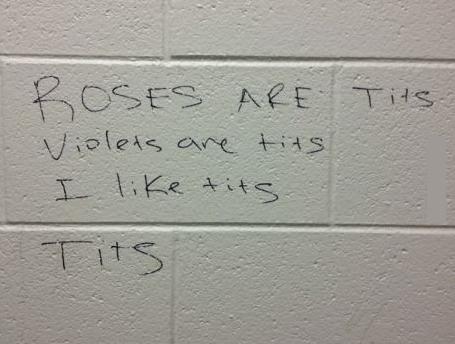 ROSES ARE Tits
Violets are tits
I like tits
Tits